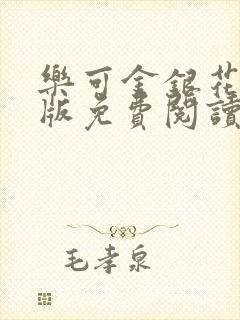 樂可金銀花
版免費閱讀
毛孝泉